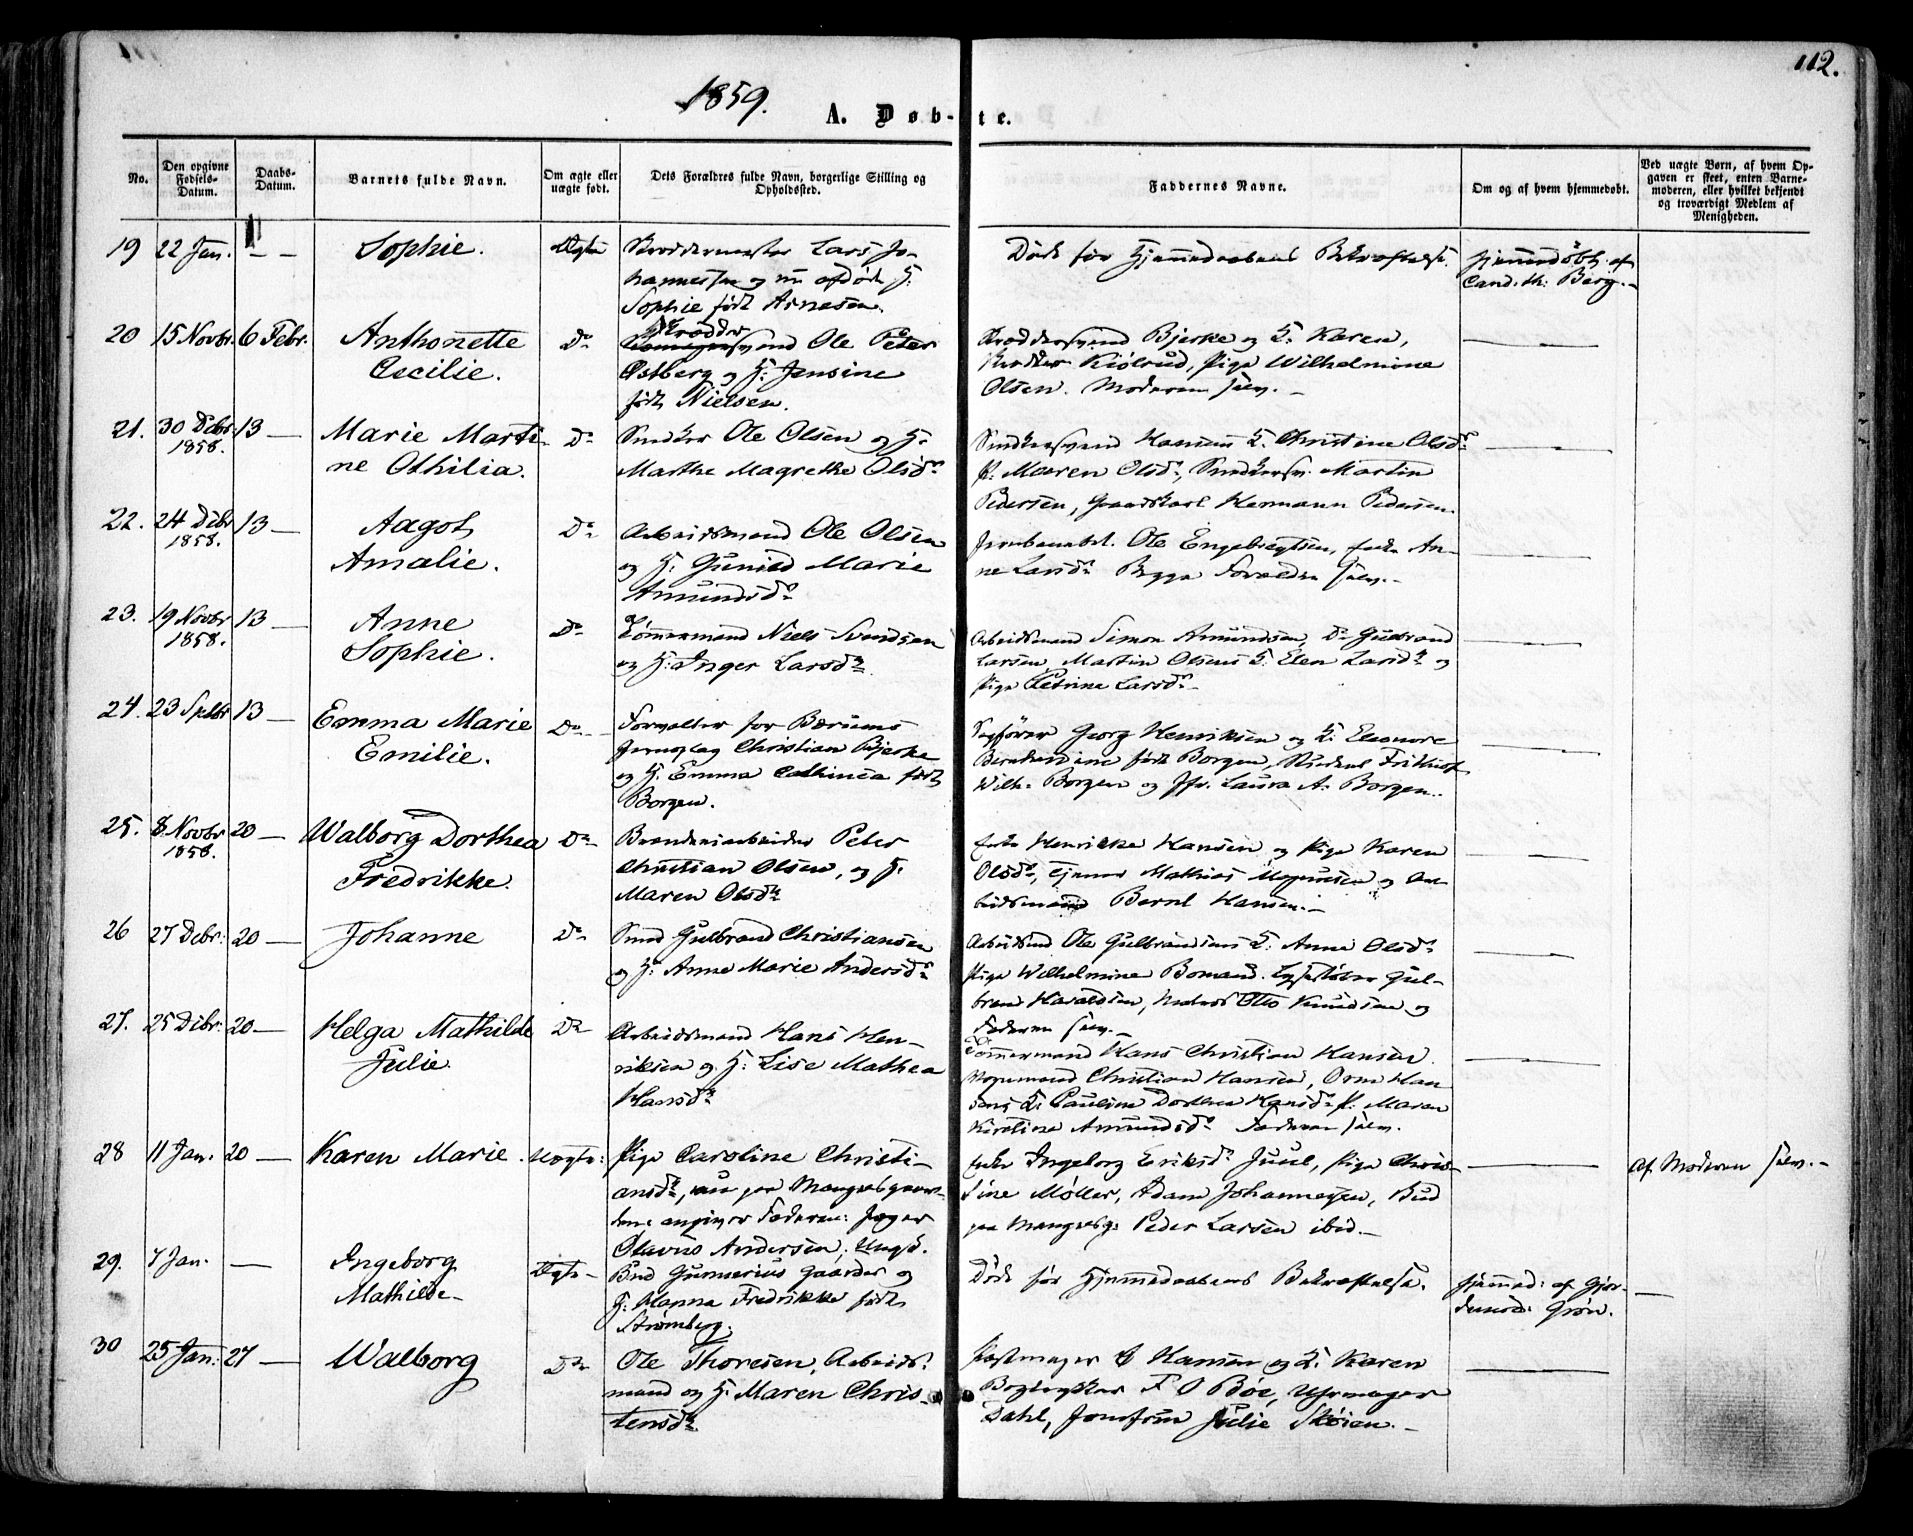 112.
1859.
A. Døb-te.
No.
Den opgivne Fødsels-Datum.
Daabs-Datum.
Barnets fulde Navn.
Om ægte eller uægte født.
Dets Forældres fulde Navn, borgerlige Stilling og Opholdssted.
Faddernes Navne.
Om og af hvem hjemmedøbt.
Ved uægte Børn, af hvem Opgaven er skeet, enten Barnemoderen, eller hvilket bekjendt og troværdigt Medlem af Menigheden.
19 22 Jan. — — Sophie. Ægte
Skræddermester Lars Jo-
hannessen og nu afdøde H:
Sophie født Arnesen.
Død før Hjemmedaabens Bekræftelse.
hjemmedøbt af
Cand. th: Berg.-
20 15 Novbr. 6 Febr. Anthonette
Cecilie. Do
Skrædder
svend Ole Peter
Østberg og H: Jensine
født Nielsen.
Skræddersvend Bjerke og K. Karen,
Skrædder Kiölrud, Pige Wilhelmine
Olsen. Moderen selv.-
21. 30 Debr 1858. 13 — Marie Marti-
ne Othilia. Do
Snedker Ole Olsen og H:
Marthe Magrethe Olsdr
Snedkersvend Hansens K. Christine Olsdr
P: Maaren Olsdr, Snedkersv. Martin
Pedersen, Gaardskarl Hermann Pedersen.
22. 24 Debr 1858. 13 — Aagot
Amalie. Do
Arbeidsmand Ole Olsen
og H: Gunild Marie
Amundsdr
Jernbanebet. Ole Engebregtsen, Enke An-
ne Larsdr Begge Forældre selv.-
23. 19 Novbr 1858. 13 — Anne
Sophie. Do
Tömmermand Niels Svendsen
og H: Inger Larsdr
Arbeidsmand Simon Amundsen, Do Gulbrand
Larsen, Martin Olsens K. Elen Larsdr og
Pige Petrine Larsdr -
24. 23 Septbr 13 — Emma Marie
Emilie. Do
Forvalter for Bærums
Jernoplag Christian Bjerke
og H. Emma Cathinca født
Borgen.
Sagfører Georg Henriksen og K. Eleonore
Bernhardine født Borgen, Student Frithiof
Wilh. Borgen og Jfr. Laura A. Borgen.
25. 8 Novbr 1858. 20 — Walborg Dorthea
Fredrikke. Do
Brænderiarbeider Peter
Christian Olsen, og H.
Maren Olsdr
Enke Henrikke Hansen og Pige Karen
Olsdr, Tjener Mathias Mognusen og Ar-
beidsmand Bernt Hansen.-
26 27 Debr. 20 — Johanne Do
Smed Gulbrand Christiansen
og H: Anne Marie Andersdr
Arbeidsmd Ole Gulbrandsens K. Anne Olsdr
Pige Wilhelmine Bomand. Gul-
brand Haraldsen, Otto Knudsen og
Faderen selv.-
27. 25 Debr. 20 — Helga Mathilde
Julie. Do
Arbeidsmand Hans Hen-
riksen og H: Lise Mathea
Hansdr
Tömmermand Hans Christian Hansen.
Vognmand Christian Hansen, Orm Han
sens K. Pauline Dorthea Hansdr P: Maren
Kirstine Amundsdr Faderen selv.
28 11 Jan. 20 — Karen Marie. Uægte:
Pige Caroline Christi-
ansdr, nu paa Mangelsgaar-
den angiver Faderen: Jæger
Olavus Andersen, Ungk.
Enke Ingeborg Eriksdr Juul, Pige Chris-
tine Møller, Adam Johannesen, Bud
paa Mangelsg. Peder Larsen ibid.-
af Moderen selv.-
29. 7 Jan. — Ingeborg
Mathilde- Ægte-
Bud Gunnerius Gaarder og
H: Hanna Fredrikke født
Strømberg.
Død før Hjemmedaabens Bekræftelse.
hjemmed: af Gjor-
demod: Grøn.
30 25 Jan: 27 — Walborg Do
Ole Thoresen, Arbeids-
mand og H: Maren Chris-
tensdr
Postmager Hansen og K. Karen
Bogtrykker F O Böe, Uhrmager
Dahl, Jomfru Julie Sköien.-